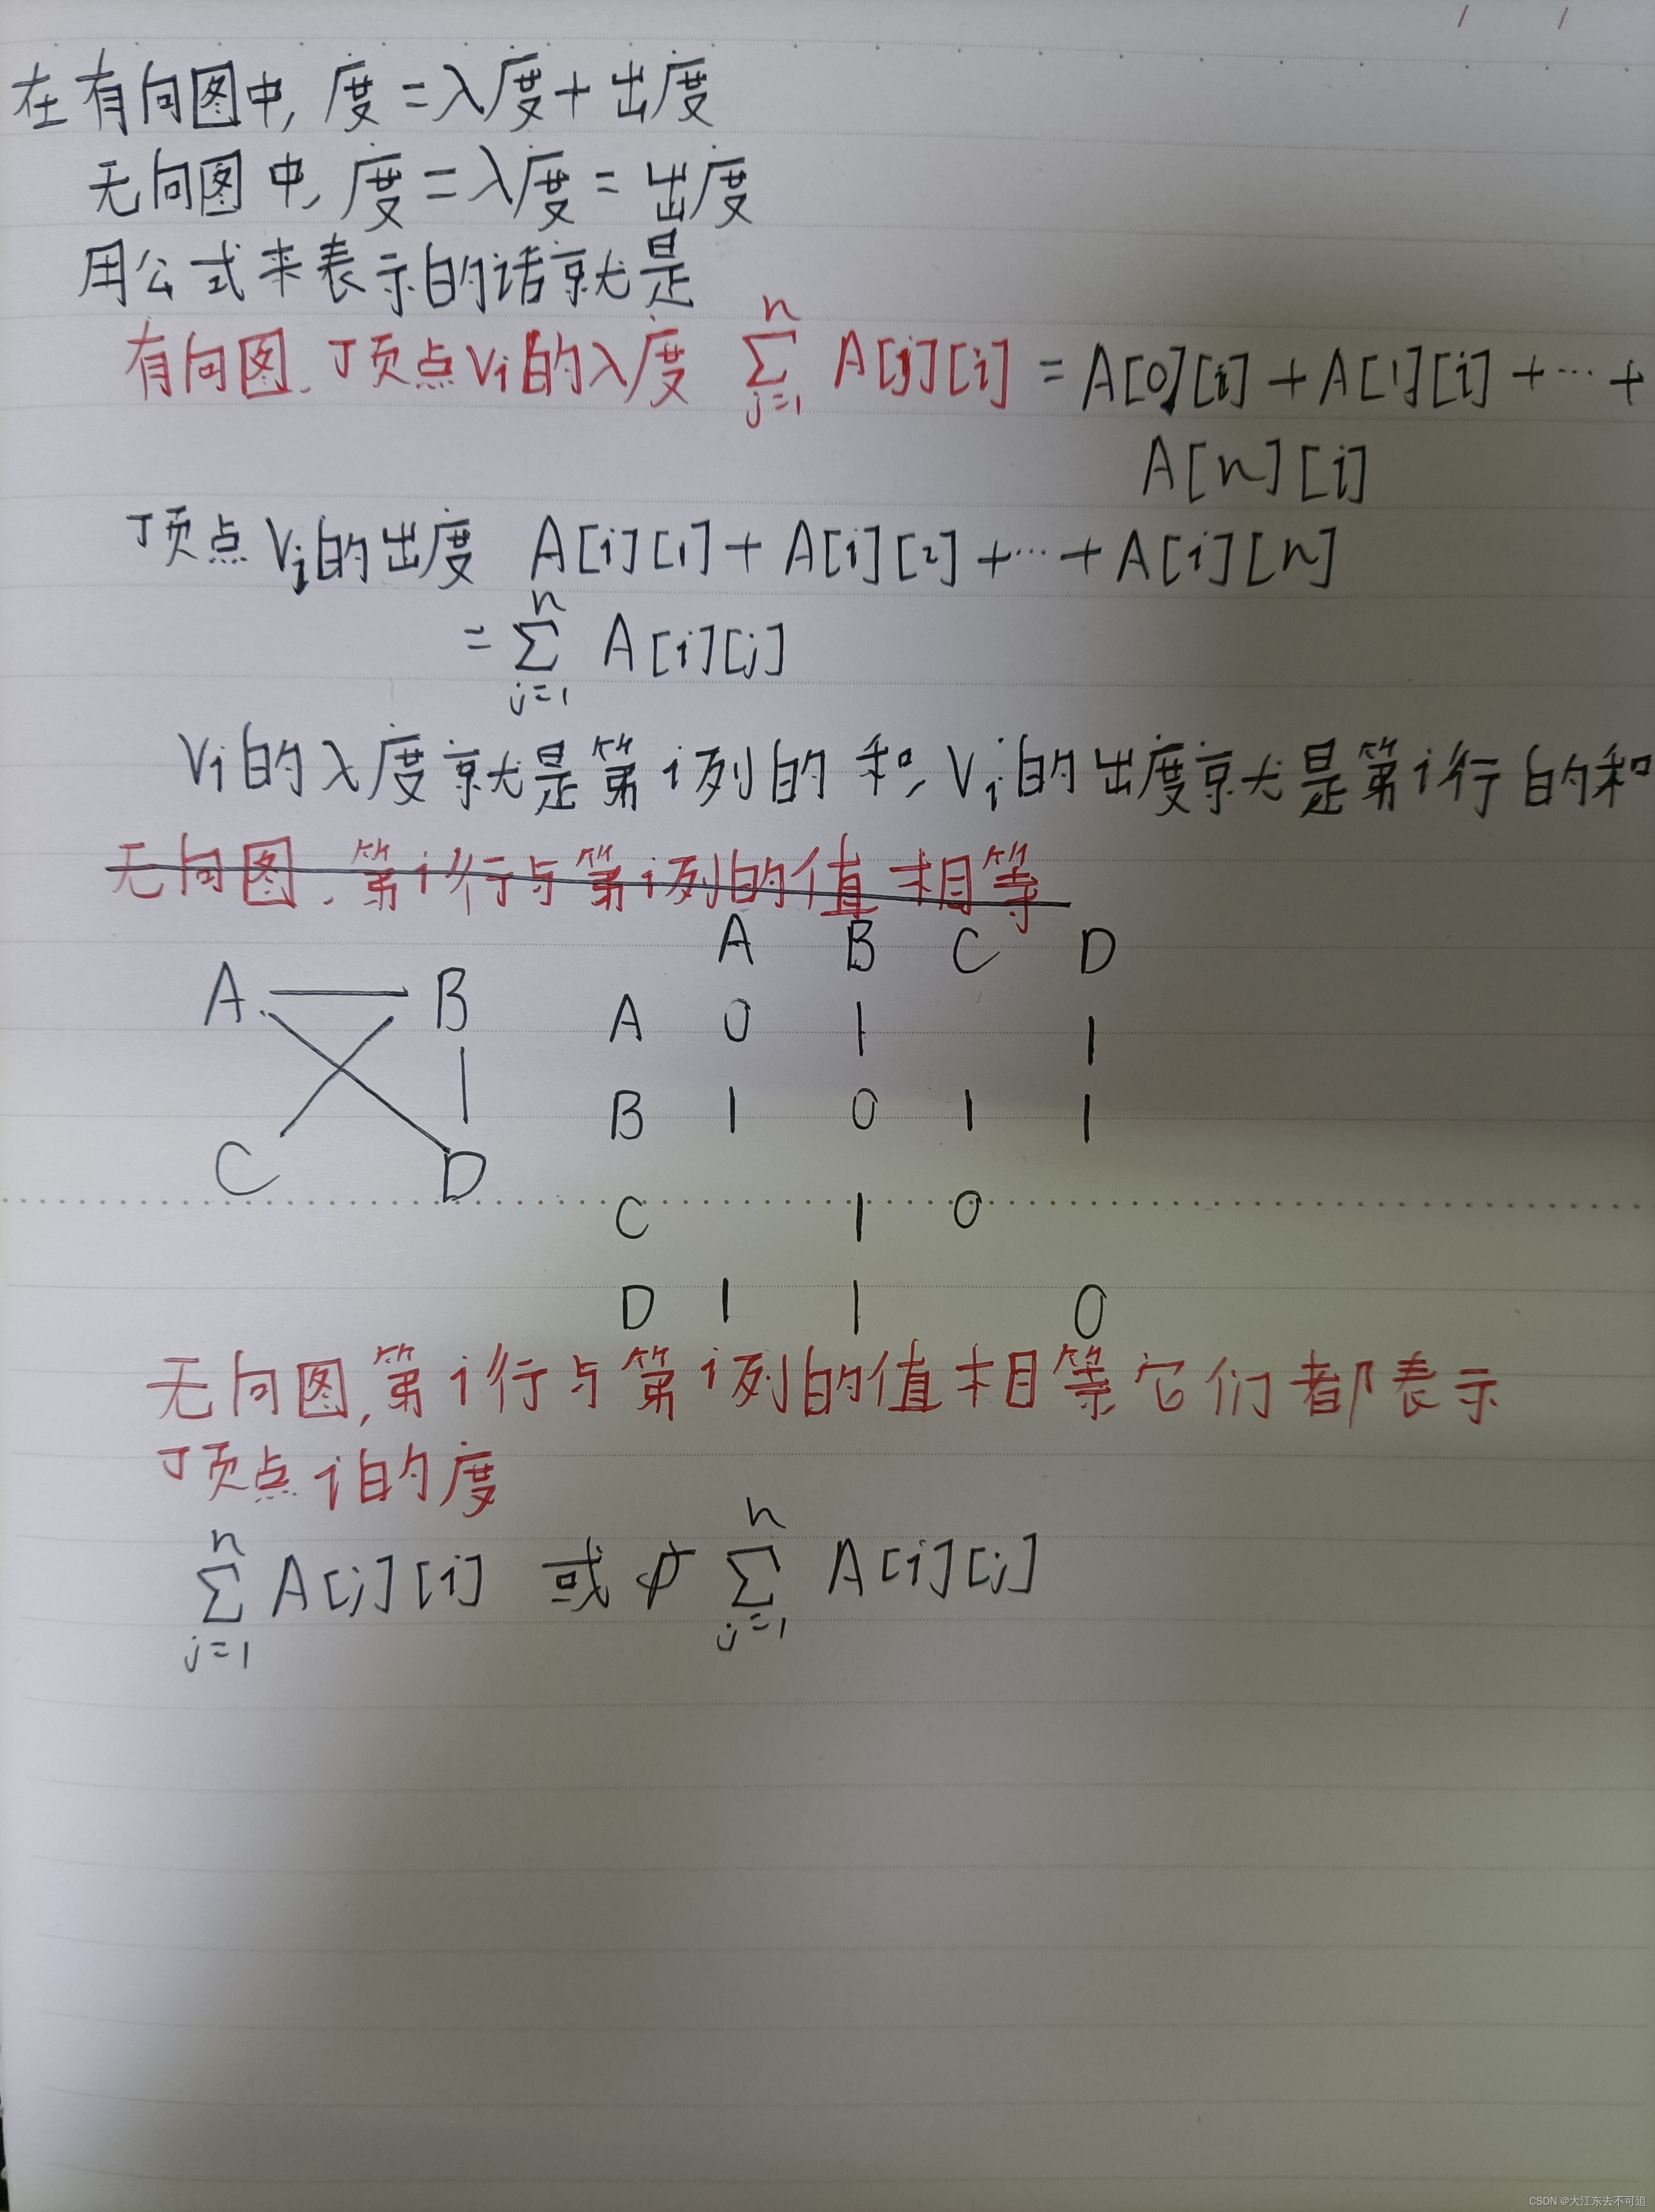 在有向图中, 度=入度+出度
无向图中, 度=入度=出度
用公式来表示的话就是
有向图. 顶点Vi的入度 n∑j=1 A[j][i] = A[0][i]+A[1][i]+…+
A[n][i]
顶点Vi的出度 A[i][1]+A[i][2]+…+A[i][n]
= n∑j=1 A[i][j]
Vi的入度就是第i列的和, Vi的出度就是第i行的和
无向图. 第i行与第i列的值相等
A B C D
A — B
A 0 1 1
B 1 0 1 1
C D
C 1 0
D 1 1 0
无向图, 第i行与第i列的值相等 它们都表示
顶点i的度
n∑j=1 A[j][i] 或 n∑j=1 A[i][j]
CSDN @大江东去不可追